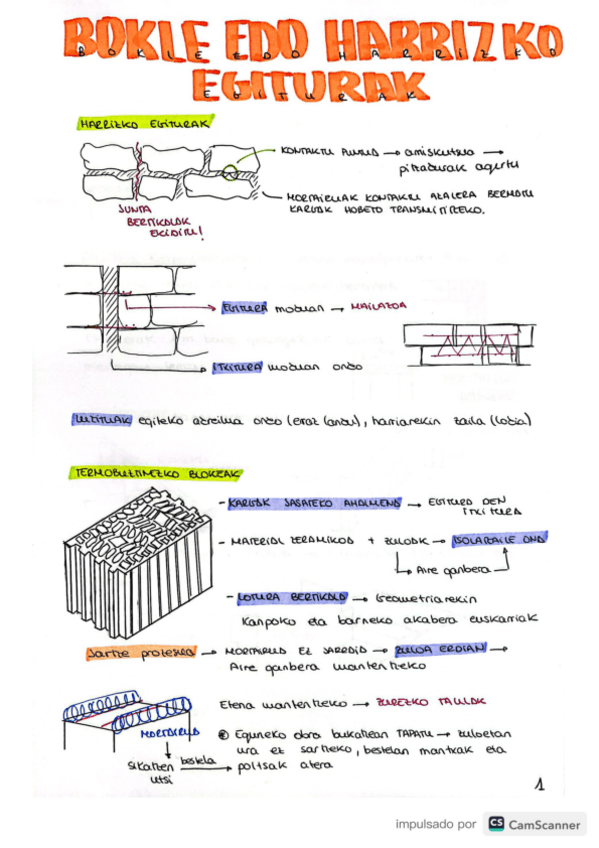 BOKLE EDO HARRIZKO
EGITURAK
HARRIZKO EGITURAK
KONTAKTU PUNTUO → amiskutzea →
pitzadurak agertu
MORTAIRUAK KONTAKTU AZALERA BERMATU
KARGAK HOBETO TRANSMITITZEKO.
JUNTA
BERTIKALAK
EKIDITU!
EGITURA moduan → MAILAZOA
ITXITURA moduan ondo
egiteko adreilua ondo (eraz landu), harriarekin zaila (lodia)
TERMOBUZTINEZKO BLOKEAK
- KARGAK JASATEKO AHALMENA → EGITURA DEN
ITXITURA
- MATERIAL ZERAMIKOA + ZULOAK → ISOLATZAILE ONA
Aire ganbera
- LOTURA BERTIKALA → Geometriarekin
Kanpoko eta barneko akabera euskarriak
Jartze prozesua → MORTAIRUA EZ JARRAIA → ZULOA ERDIAN →
Aire ganbera mantentzeko
Etena mantentzeko → ZUREZKO TAULAK
MORTAIRUA
Eguneko obra bukatzean TAPATU → zuloetan
ura ez sartzeko, bestelan mantxak eta
poltsak atera
Sikatzen bestela
utsi
1
impulsado por CS CamScanner